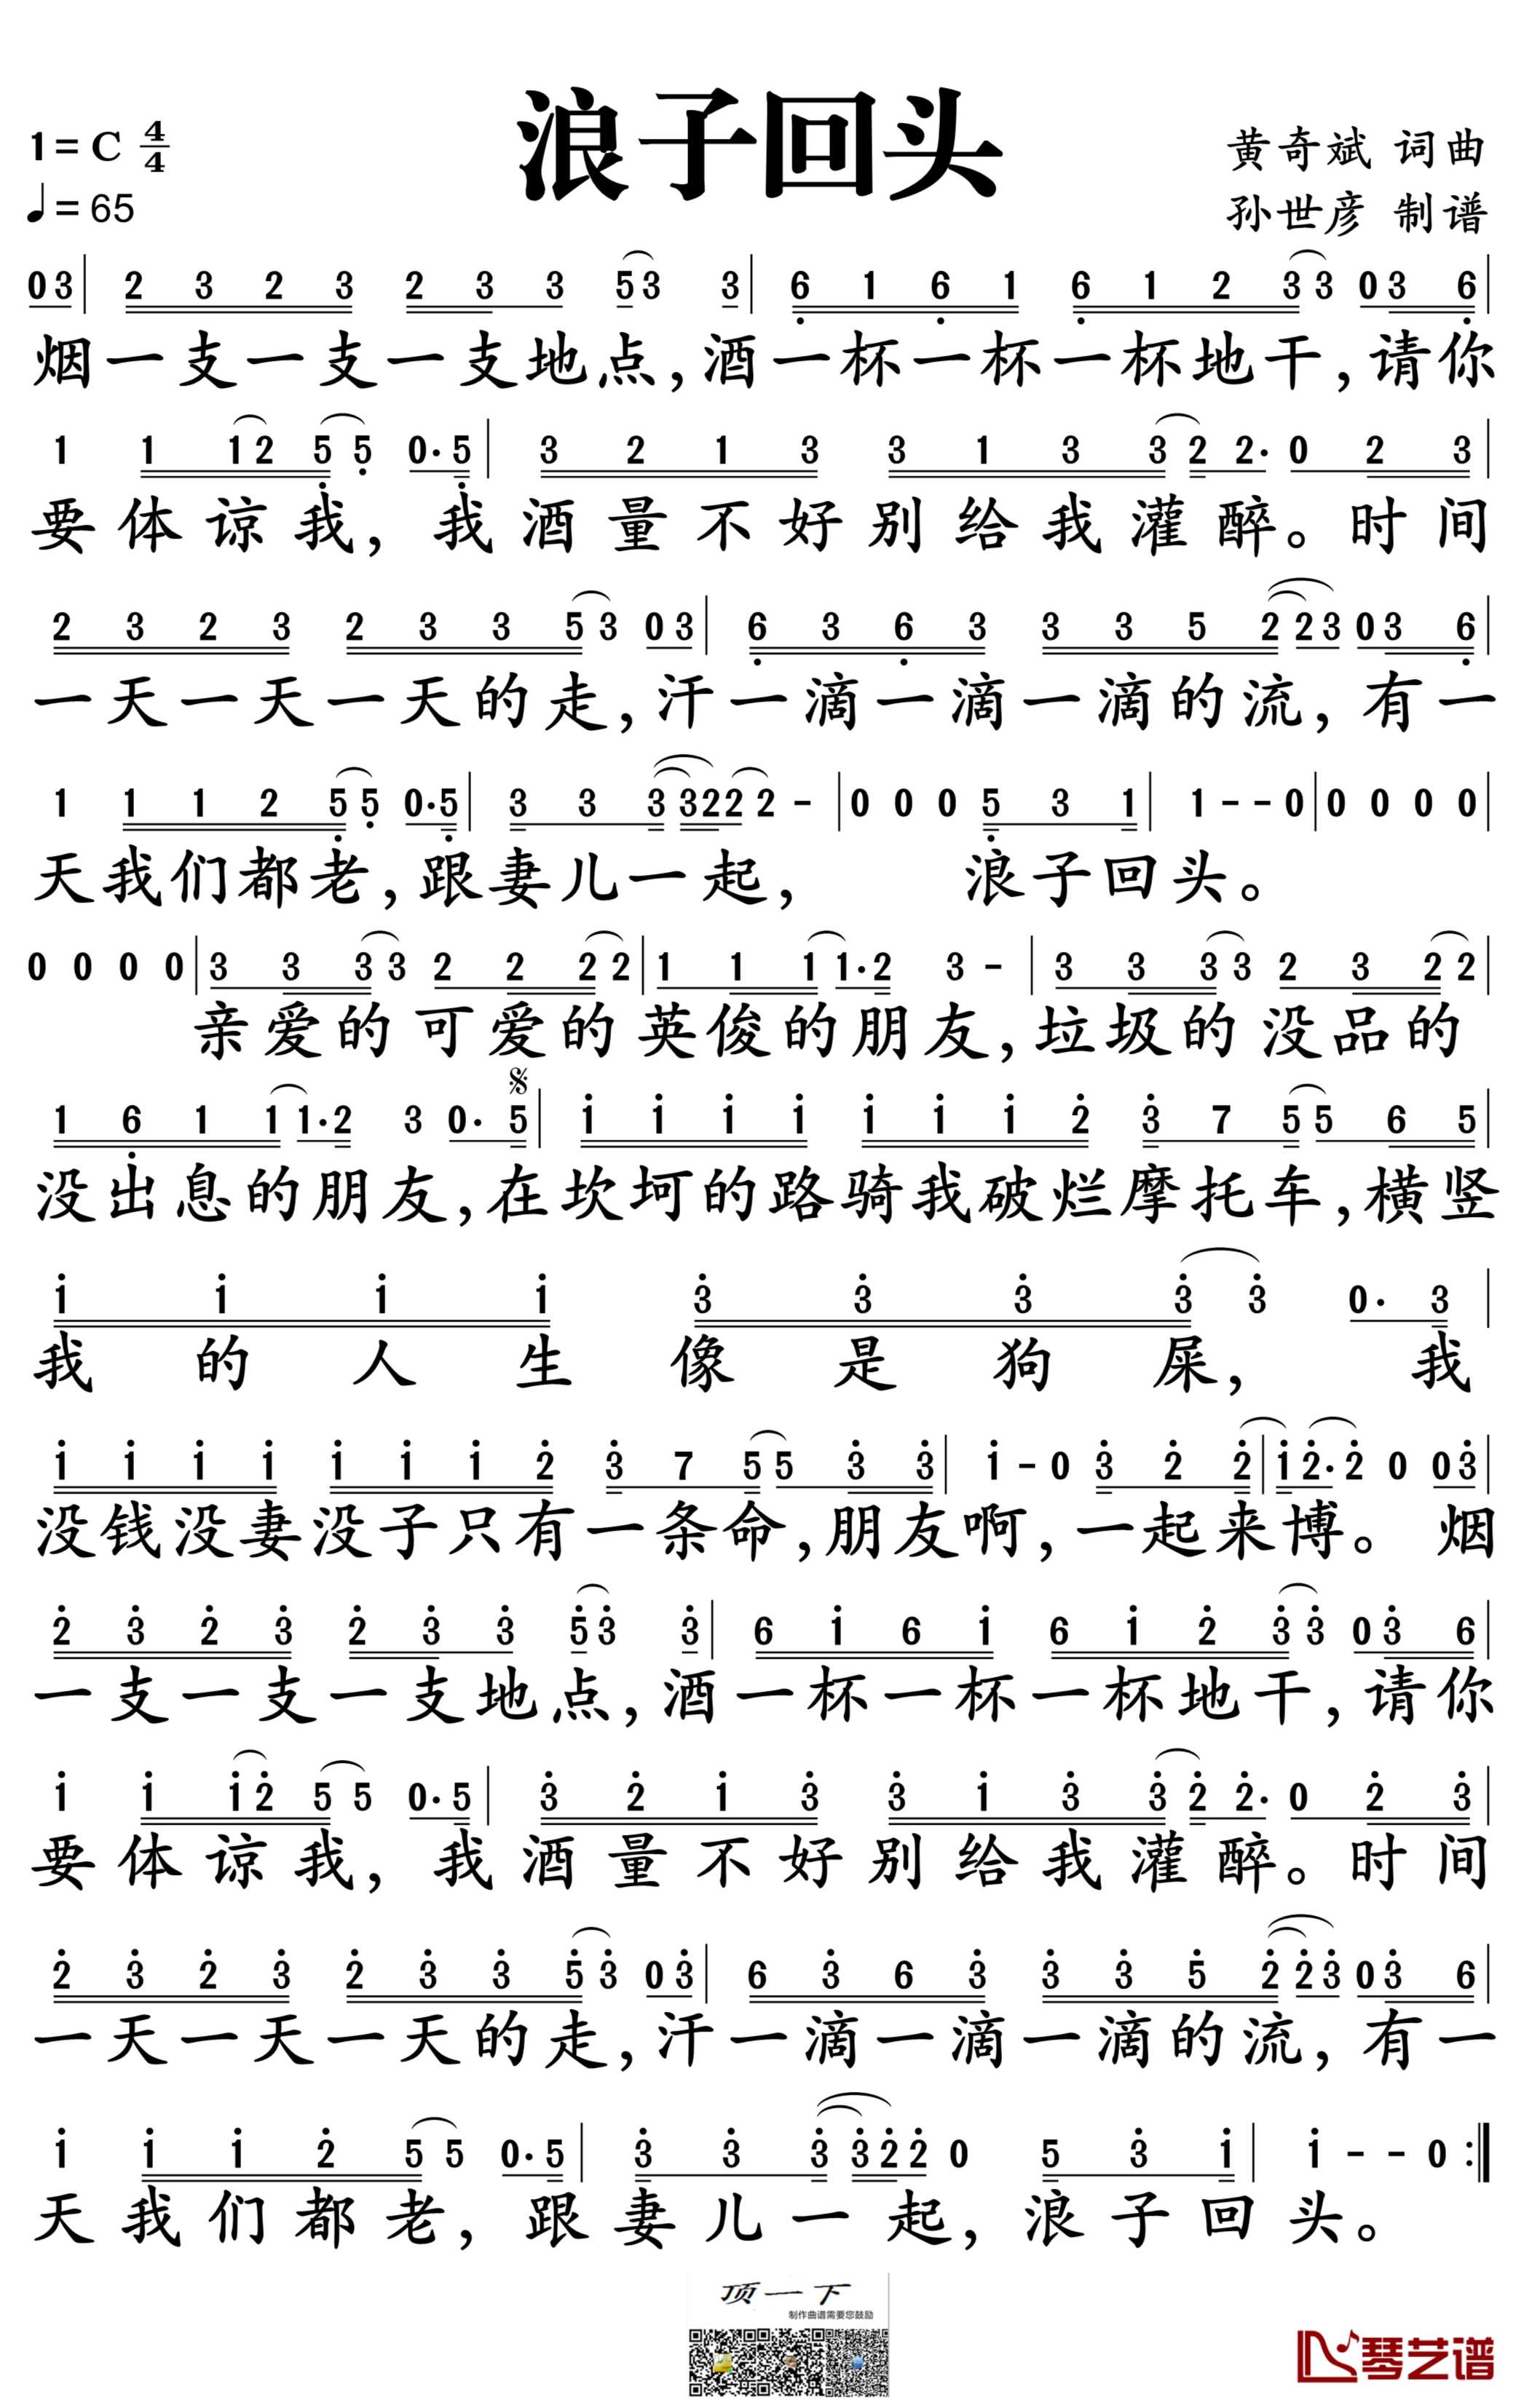 浪子回头
1=C 4/4
♩=65
黄奇斌 词曲
孙世彦 制谱
03| 2 3 2 3 2 3 3 53 3| 6 1 6 1 6 1 2 33 03 6|
烟一支一支一支地点,酒一杯一杯一杯地干,请你
1 1 12 5 5 0·5| 3 2 1 3 3 1 3 32 2· 0 2 3|
要体谅我,我酒量不好别给我灌醉。时间
2 3 2 3 2 3 3 53 03| 6 3 6 3 3 3 5 223 03 6|
一天一天一天的走,汗一滴一滴一滴的流,有一
1 1 1 2 55 0·5| 3 3 3322 2 -|0 0 0 5 3 1| 1--0|0 0 0 0|
天我们都老,跟妻儿一起,浪子回头。
0 0 0 0|3 3 33 2 2 22|1 1 11·2 3 -| 3 3 33 2 3 22|
亲爱的可爱的英俊的朋友,垃圾的没品的
1 6 1 11·2 3 0· 5| i i i i i i i 2 3 7 55 6 5|
没出息的朋友,在坎坷的路骑我破烂摩托车,横竖
i i i i 3 3 3 3 3 0· 3|
我的人生像是狗屎,我
i i i i i i i 2 3 7 55 3 3| i - 0 3 2 2|i2·2 0 03|
没钱没妻没子只有一条命,朋友啊,一起来博。烟
2 3 2 3 2 3 3 53 3| 6 i 6 i 6 i 2 33 03 6|
一支一支一支地点,酒一杯一杯一杯地干,请你
i i i2 5 5 0·5| 3 2 i 3 3 i 3 32 2· 0 2 3|
要体谅我,我酒量不好别给我灌醉。时间
2 3 2 3 2 3 3 53 03| 6 3 6 3 3 3 5 223 03 6|
一天一天一天的走,汗一滴一滴一滴的流,有一
i i i 2 5 5 0·5| 3 3 3322 0 5 3 i| i - - 0 :|
天我们都老,跟妻儿一起,浪子回头。
顶一下
制作曲谱需要您鼓励
琴艺谱